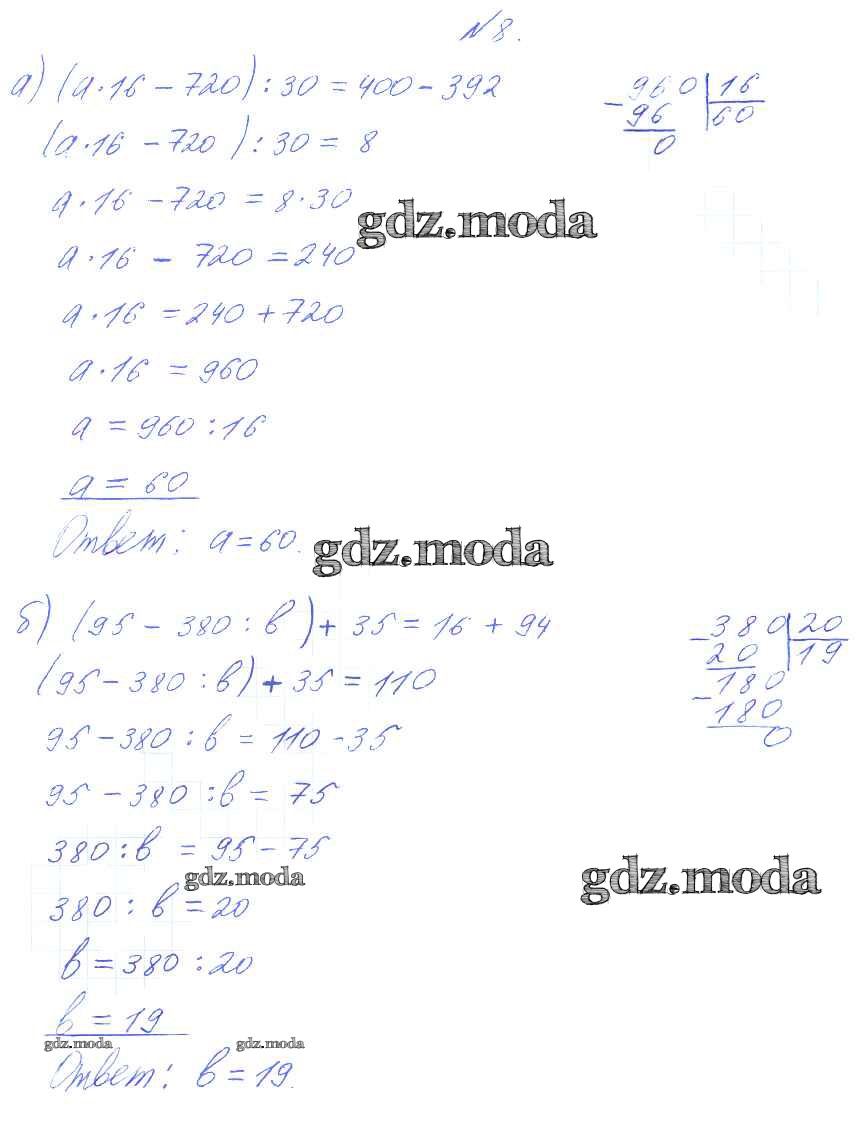 №8.
а) (а·16 – 720) : 30 = 400 – 392
(а·16 – 720) : 30 = 8
а·16 – 720 = 8·30
gdz.moda
а·16 – 720 = 240
а·16 = 240 + 720
а·16 = 960
а = 960 : 16
а = 60
Ответ: а = 60.
gdz.moda
960 | 16
– 96 | 60
0
б) (95 – 380 : в) + 35 = 16 + 94
(95 – 380 : в) + 35 = 110
95 – 380 : в = 110 – 35
95 – 380 : в = 75
380 : в = 95 – 75
gdz.moda
gdz.moda
380 : в = 20
в = 380 : 20
в = 19
gdz.moda gdz.moda
Ответ: в = 19.
– 380 | 20
20 | 19
180
– 180
0